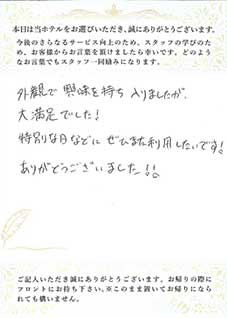 本日は当ホテルをお選びいただき、誠にありがとうございます。
今後のさらなるサービス向上のため、スタッフの学びのた
め、お客様からお言葉を頂けましたら幸いです。どのよう
なお言葉でもスタッフ一同励みになります。
外観で興味を持ち入りましたが、
大満足でした!
特別な日などに ぜひまた利用したいです!
ありがとうございました!!
ご記入いただき誠にありがとうございます。お帰りの際に
フロントにお持ち下さい。※このまま置いてお帰りになら
れても構いません。